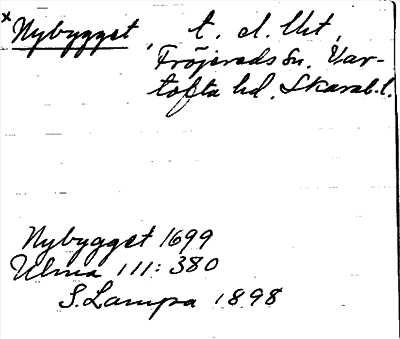 x Nybygget, t. d. Utt,
Fröjereds Sn. Var-
tofta hd. Skarab.l.
Nybygget 1699
Ulma 111: 380
S. Lampa 1898